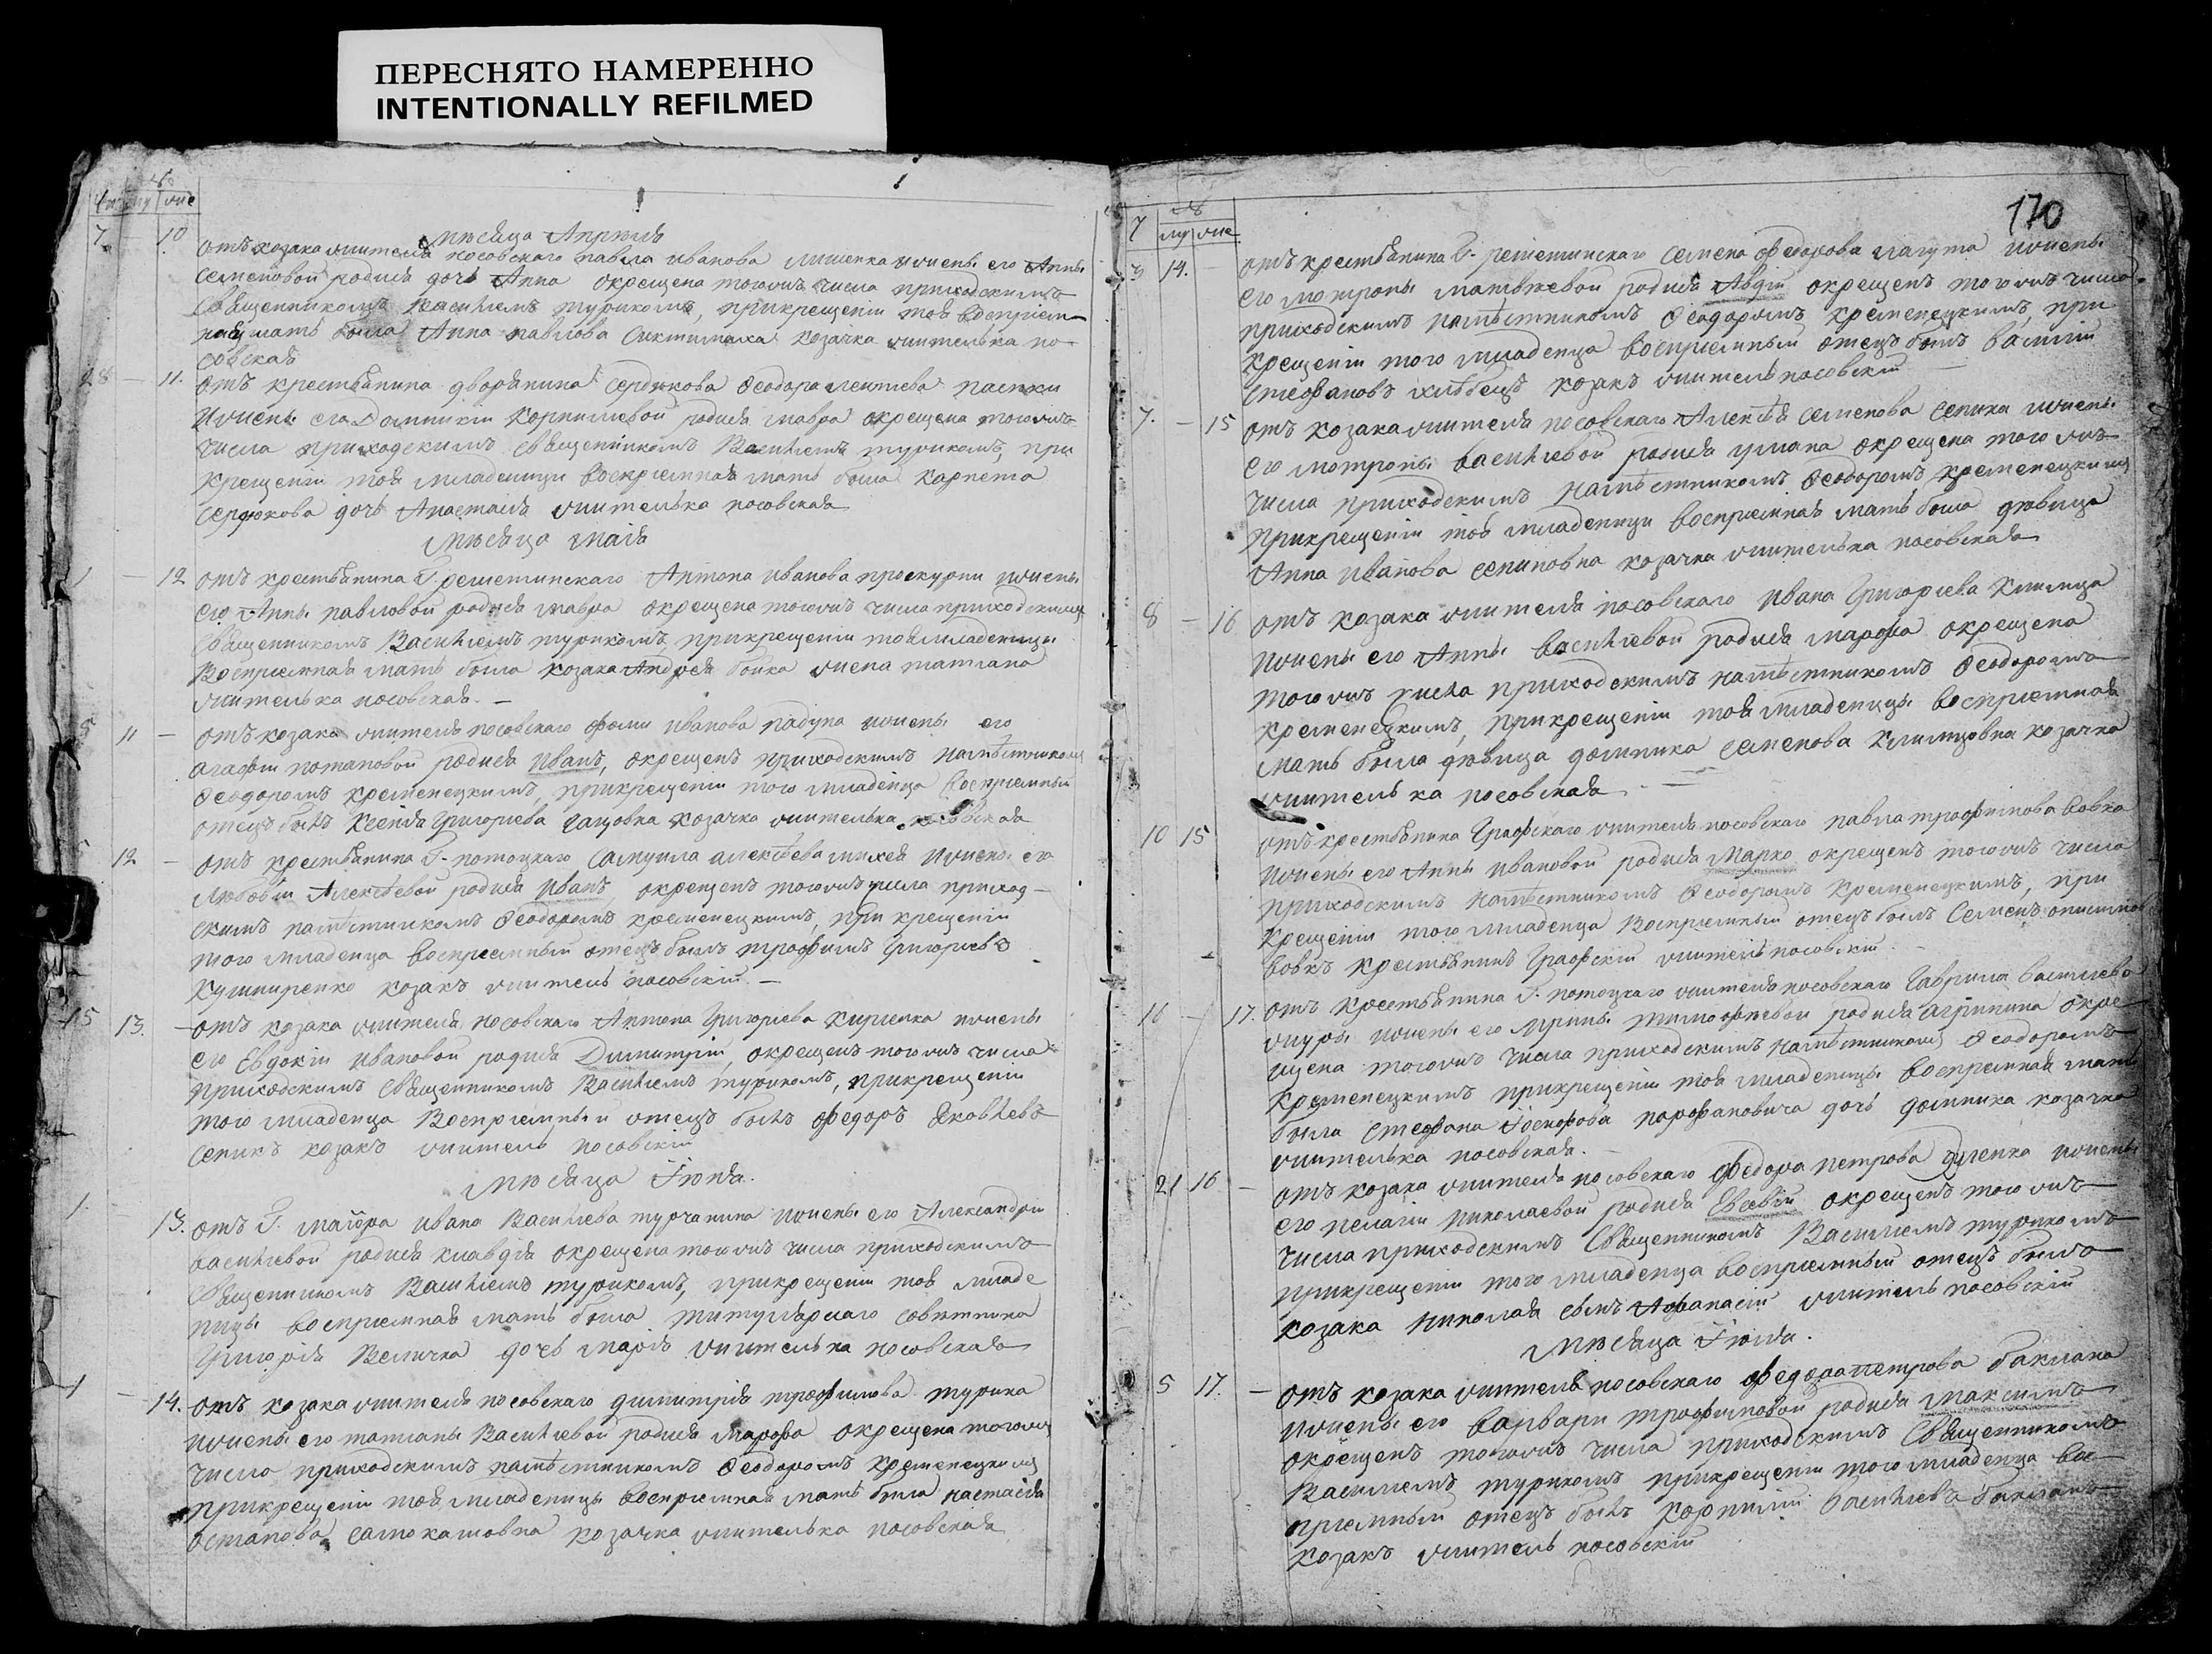 ПЕРЕСНЯТО НАМЕРЕННО
INTENTIONALLY REFILMED
муж жие
мѣсяца Апрѣля
7 10 отъ козака жителя носовскаго павла иванова лишенка ижены его Анны
семеновой родися дочь Анна окрещена тогожъ числа приходскимъ
священникомъ Василіемъ турикомъ, прикрещеніи тоя воспріем
ная мать была Анна павлова козачка жителька но
совская
28 — 11. отъ крестьянина дворянина сердюкова Ѳеодора леонтиева
ижены его Домникіи корнилиевой родися мавра окрещена тогожъ
числа приходскимъ священникомъ Василіемъ турикомъ, при
крещеніи тоя младеници воспріемная мать была карпета
сердюкова дочь Анастасія жителька носовская
мѣсяца маія
1 — 12 отъ крестьянина Г. решетинскаго Антона иванова проскурни ижены
его Анны павловой родися мавра окрещена тогожъ числа приходскимъ
священникомъ Василіемъ турикомъ, прикрещеніи тоя младеницы
Воспріемная мать была козака Андрея бойка жена татіана
жителька носовская. —
5 11 — отъ козака жителя носовскаго фомы иванова падуна ижены его
агафіи потаповой родися иванъ, окрещенъ приходскимъ намѣстникомъ
Ѳеодоромъ кременецкимъ, прикрещеніи того младенца воспріемный
отецъ былъ Ксенія григориева козачка жителька носовская
12 — отъ крестьянина Г. потоцкаго самуила алексѣева михея ижены его
любови Алексѣевой родися иванъ, окрещенъ тогожъ числа приход-
скимъ намѣстникомъ Ѳеодоромъ кременецкимъ, при крещеніи
того младенца воспріемный отецъ былъ трофимъ григориевъ
кушниренко козакъ житель носовскій. —
15 13. — отъ козака жителя носовскаго Антона григориева кириенка ижены
его Евдокіи ивановой родися Димитрій, окрещенъ тогожъ числа
приходскимъ священникомъ Василіемъ турикомъ, прикрещеніи
того младенца Воспріемный отецъ былъ федоръ яковлевъ
сепикъ козакъ житель носовскій
мѣсяца Іюня.
1. 13. отъ Г. маіора ивана Василиева турчанина ижены его Александры
василиевой родися клавдія окрещена тогожъ числа приходскимъ
священникомъ Василіемъ турикомъ, прикрещеніи тоя младе
ницы воспріемная мать была титулярнаго совѣтника
григорія Величка дочь марія жителька носовская
1 — 14. отъ козака жителя носовскаго димитрія трофимова турика
ижены его татіаны Василиевой родися марфа окрещена тогожъ
числа приходскимъ намѣстникомъ Ѳеодоромъ кременецкимъ
прикрещеніи тоя младеницы воспріемная мать была настасія
остапова козачка жителька носовская
170
7 муж жие
3 14. — отъ крестьянина Г. решетинскаго семена федорова лагута ижены
его мотроны матвѣевой родися Авдій окрещенъ тогожъ числа
приходскимъ намѣстникомъ Ѳеодоромъ кременецкимъ, при
крещеніи того младенца воспріемный отецъ былъ василій
стефановъ козакъ житель носовскій —
7. — 15 отъ козака жителя носовскаго Алексѣя семенова сепика ижены
его мотроны василиевой родися улиана окрещена тогожъ
числа приходскимъ намѣстникомъ Ѳеодоромъ кременецкимъ
прикрещеніи тоя младеници воспріемная мать была дѣвица
Анна иванова сепиковна козачка жителька носовская
8 — 16 отъ козака жителя носовскаго ивана григориева климца
ижены его Анны василиевой родися марфа окрещена
тогожъ числа приходскимъ намѣстникомъ Ѳеодоромъ
кременецкимъ, прикрещеніи тоя младеницы воспріемная
мать была дѣвица домника семенова климцовна козачка
жителька носовская. —
10 15 отъ крестьянина графскаго жителя носовскаго павла трофимова вовка
ижены его Анны ивановой родися Марко окрещенъ тогожъ числа
приходскимъ намѣстникомъ Ѳеодоромъ кременецкимъ, при
крещеніи того младенца Воспріемный отецъ былъ Семенъ
вовкъ крестьянинъ графскій житель носовскій. —
16 — 17. отъ крестьянина Г. потоцкаго жителя носовскаго гаврила василиева
ижены его ирины тимофѣевой родися агрипина окре-
щена тогожъ числа приходскимъ намѣстникомъ Ѳеодоромъ
кременецкимъ прикрещеніи тоя младеницы воспріемная мать
была стефана Іосифова парфановича дочь домника козачка
жителька носовская. —
21 16 — отъ козака жителя носовскаго федора петрова ижены
его пелагіи николаевой родися Евсевій окрещенъ тогожъ
числа приходскимъ Священникомъ Василіемъ турикомъ
прикрещеніи того младенца воспріемный отецъ былъ
козака николая сынъ Афанасій житель носовскій
мѣсяца Іюля.
5 17. — отъ козака жителя носовскаго федора петрова баклана
ижены его варвари трофимовой родися максимъ
окрещенъ тогожъ числа приходскимъ священникомъ
Василіемъ турикомъ прикрещеніи того младенца вос
пріемный отецъ былъ корнилій василиевъ бакланъ
козакъ житель носовскій